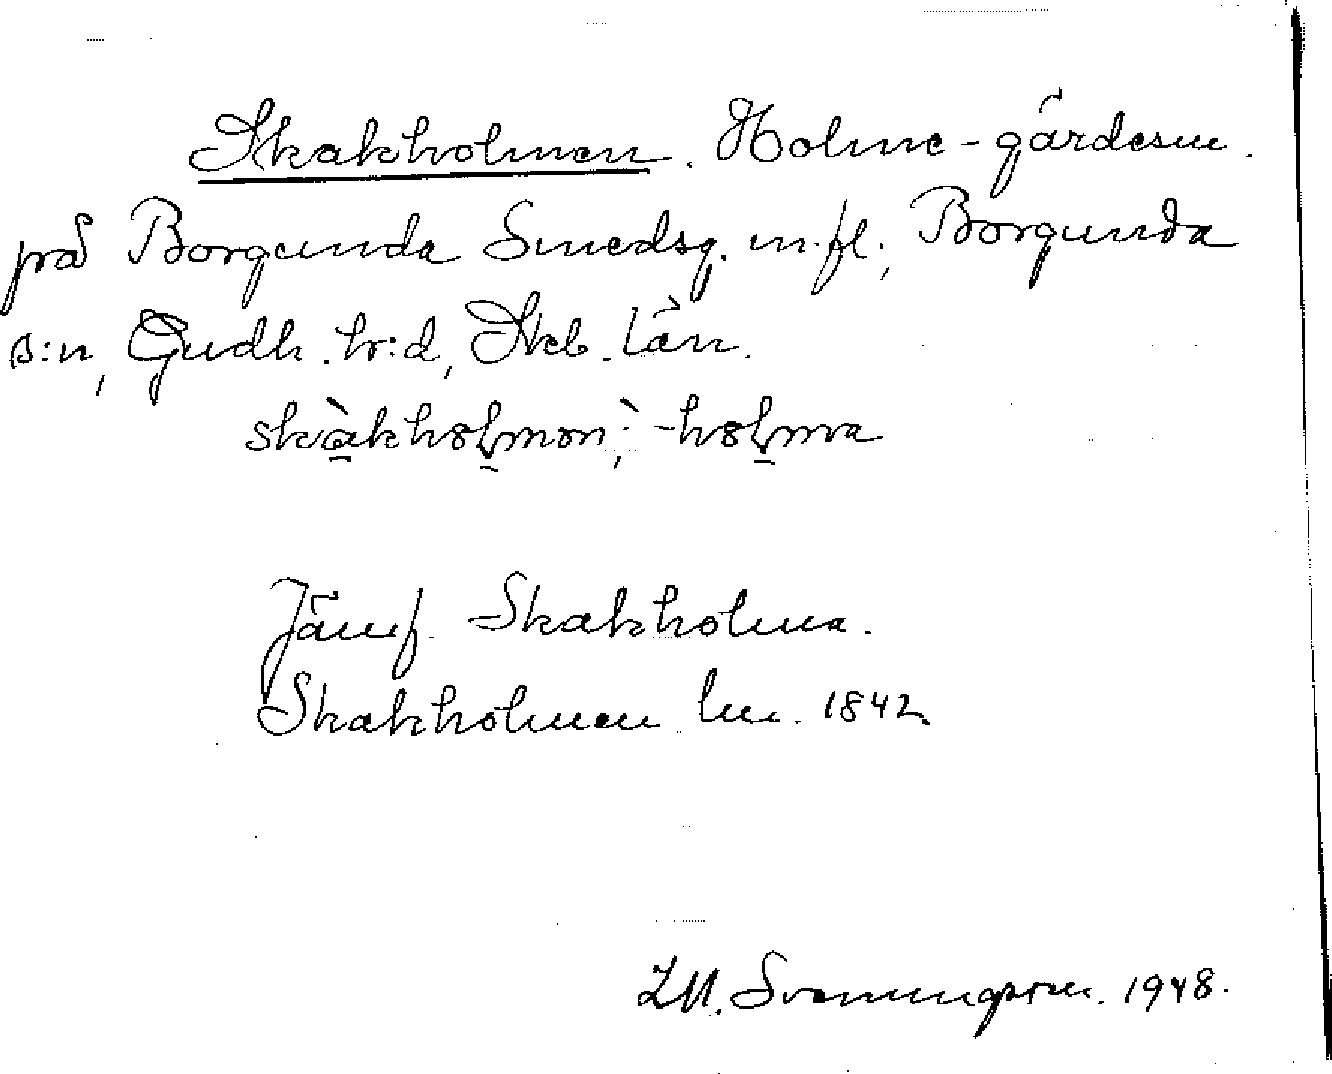 Skakholmen. Holme-gärdesn.
på Borgunda Smedsg. m.fl., Borgunda
s:n, Gudh. hr:d, Skb. län.
skàkhoɫmɘn; -hoɫma
Jämf. Skakholma.
Skakholmen lm. 1842
Z.M. Svenungsson. 1948.